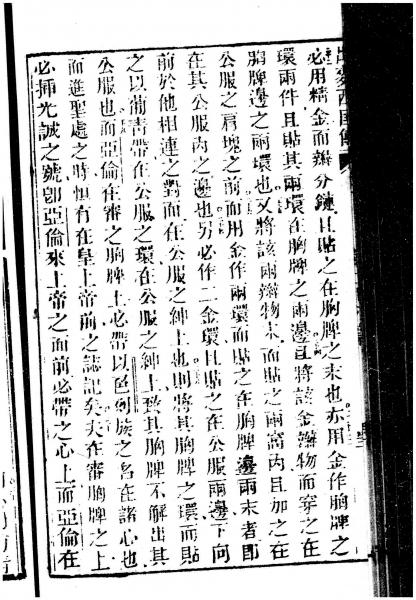 必用精金而辮分鏈且貼之在胸牌之末也亦用金作胸牌之
環兩件且貼其兩環在胸牌之兩邊且將該金辮物而穿之在
胸牌邊之兩環也又將該兩辮物末而貼之兩窩內且加之在
公服之肩塊之前而用金作兩環而貼之在胸牌邊兩末者即
在其公服內之邊也另必作二金環且貼之在公服兩邊下向
前於他相連之對而在公服之紳上也則將其胸牌之環而貼
之以葡青帶在公服之環在公服之紳上致其胸牌不解出其
公服也而亞倫在審之胸牌上必帶以色列族之名在諸心也
而進聖處之時恒有在皇上帝前之誌記矣夫在審胸牌之上
必揷光誠之號卽亞倫來上帝之面前必帶之心上而亞倫在